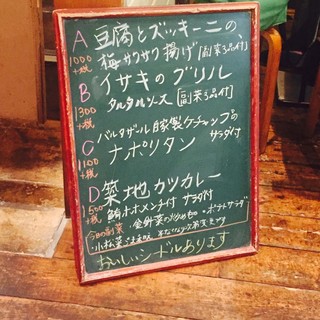 A 豆腐とズッキーニの、
1000+税 梅サクサク揚げ [副菜3品付]
B イサキのグリル
1300+税 タルタルソース [副菜3品付]
C バルタザール自家製ケチャップの
1100+税 ナポリタン サラダ付
D 築地、カツカレー
1500+税 鮪ホホメンチ付 サラダ付
今日の副菜 金針菜の炒めもの・ポテトサラダ
・小松菜ごま和え
おいしいシードルあります